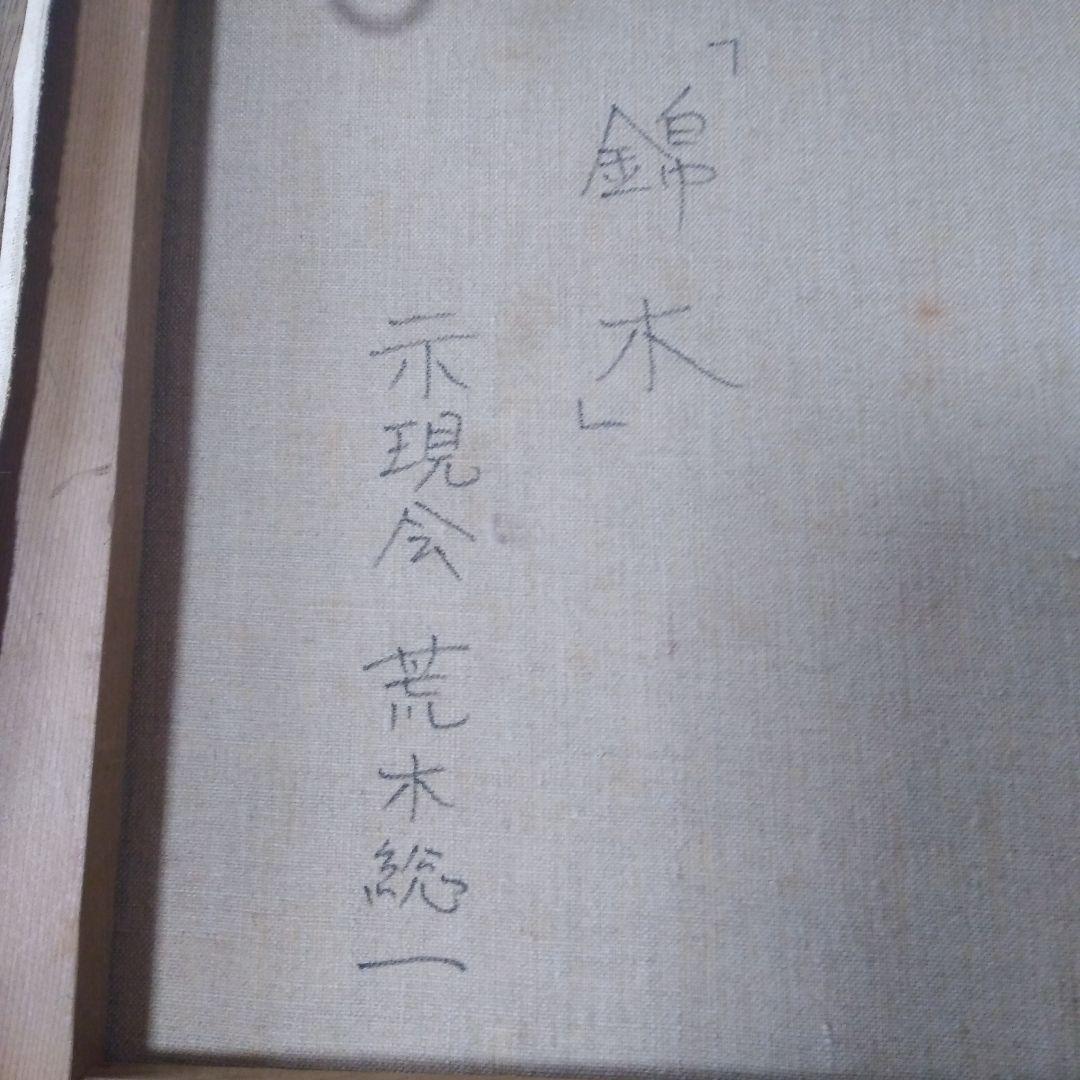 「錦木」
示現会 荒木総一